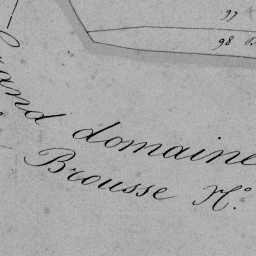 97
98
Grand domaine
Brousse H°.